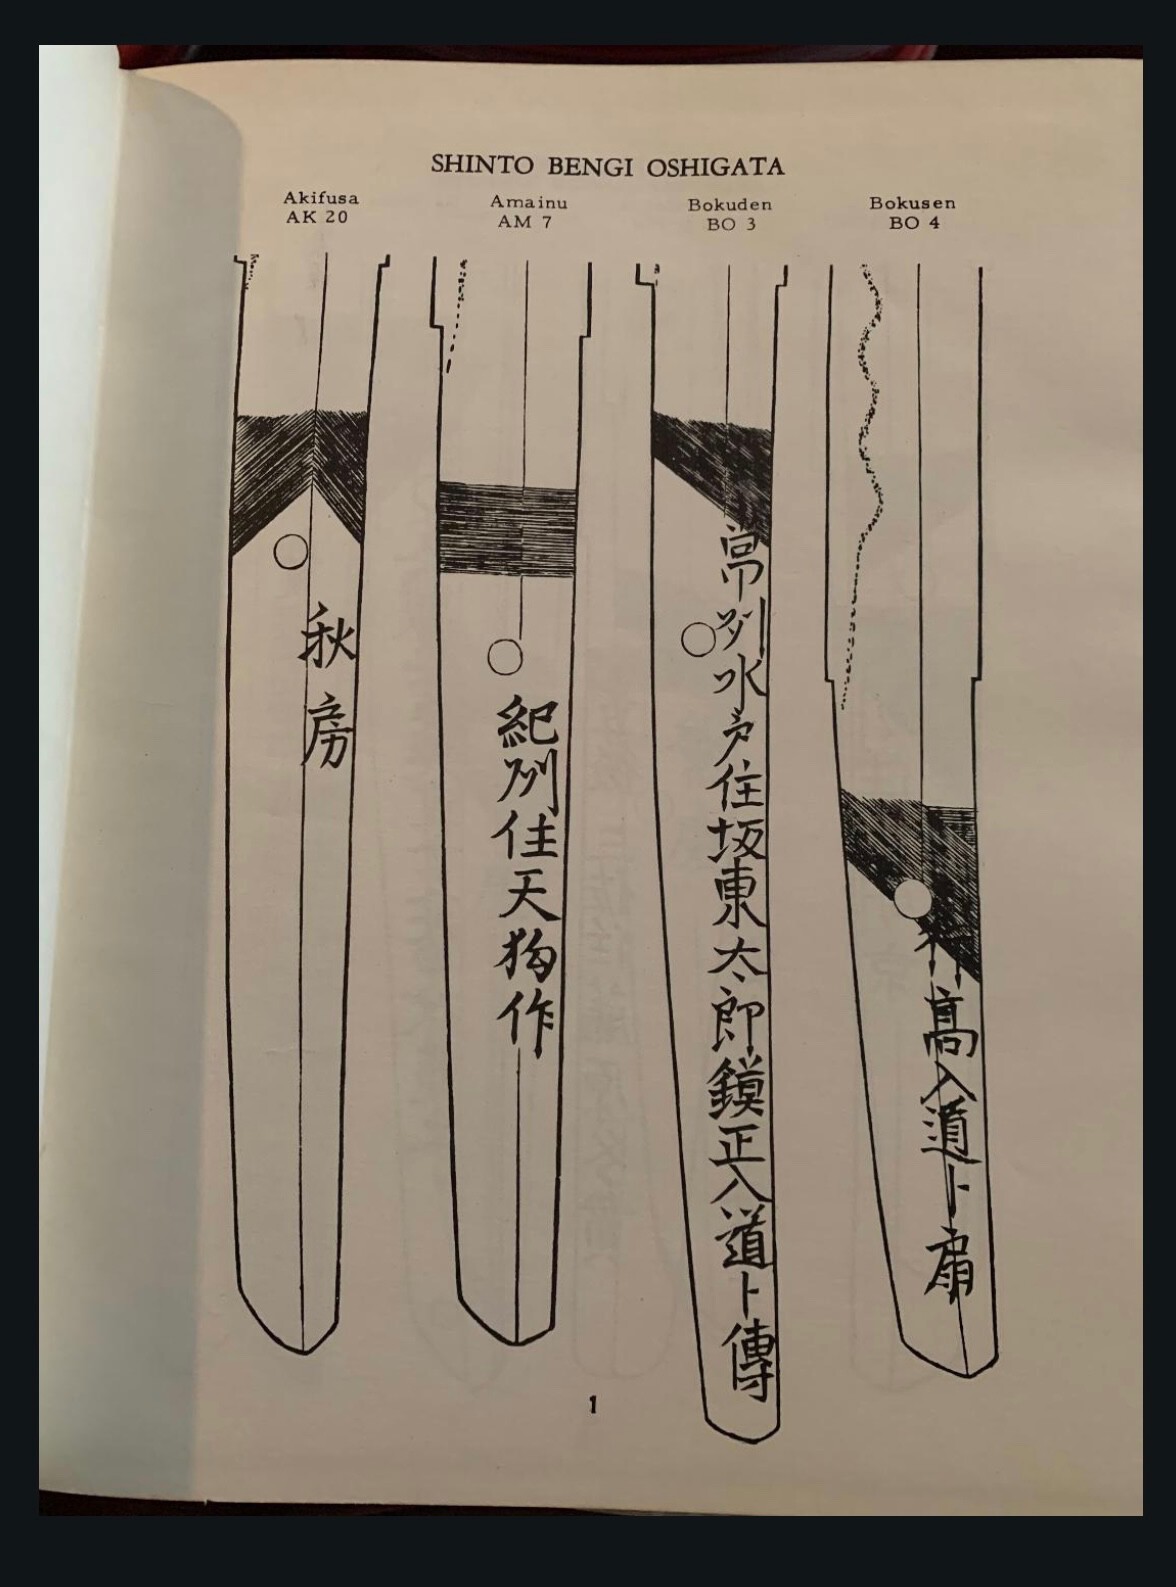 SHINTO BENGI OSHIGATA
Akifusa
AK 20
Amainu
AM 7
Bokuden
BO 3
Bokusen
BO 4
秋房
紀州住天狗作
常州水戸住坂東太郎鏌正入道卜傳
高入道卜扇
1